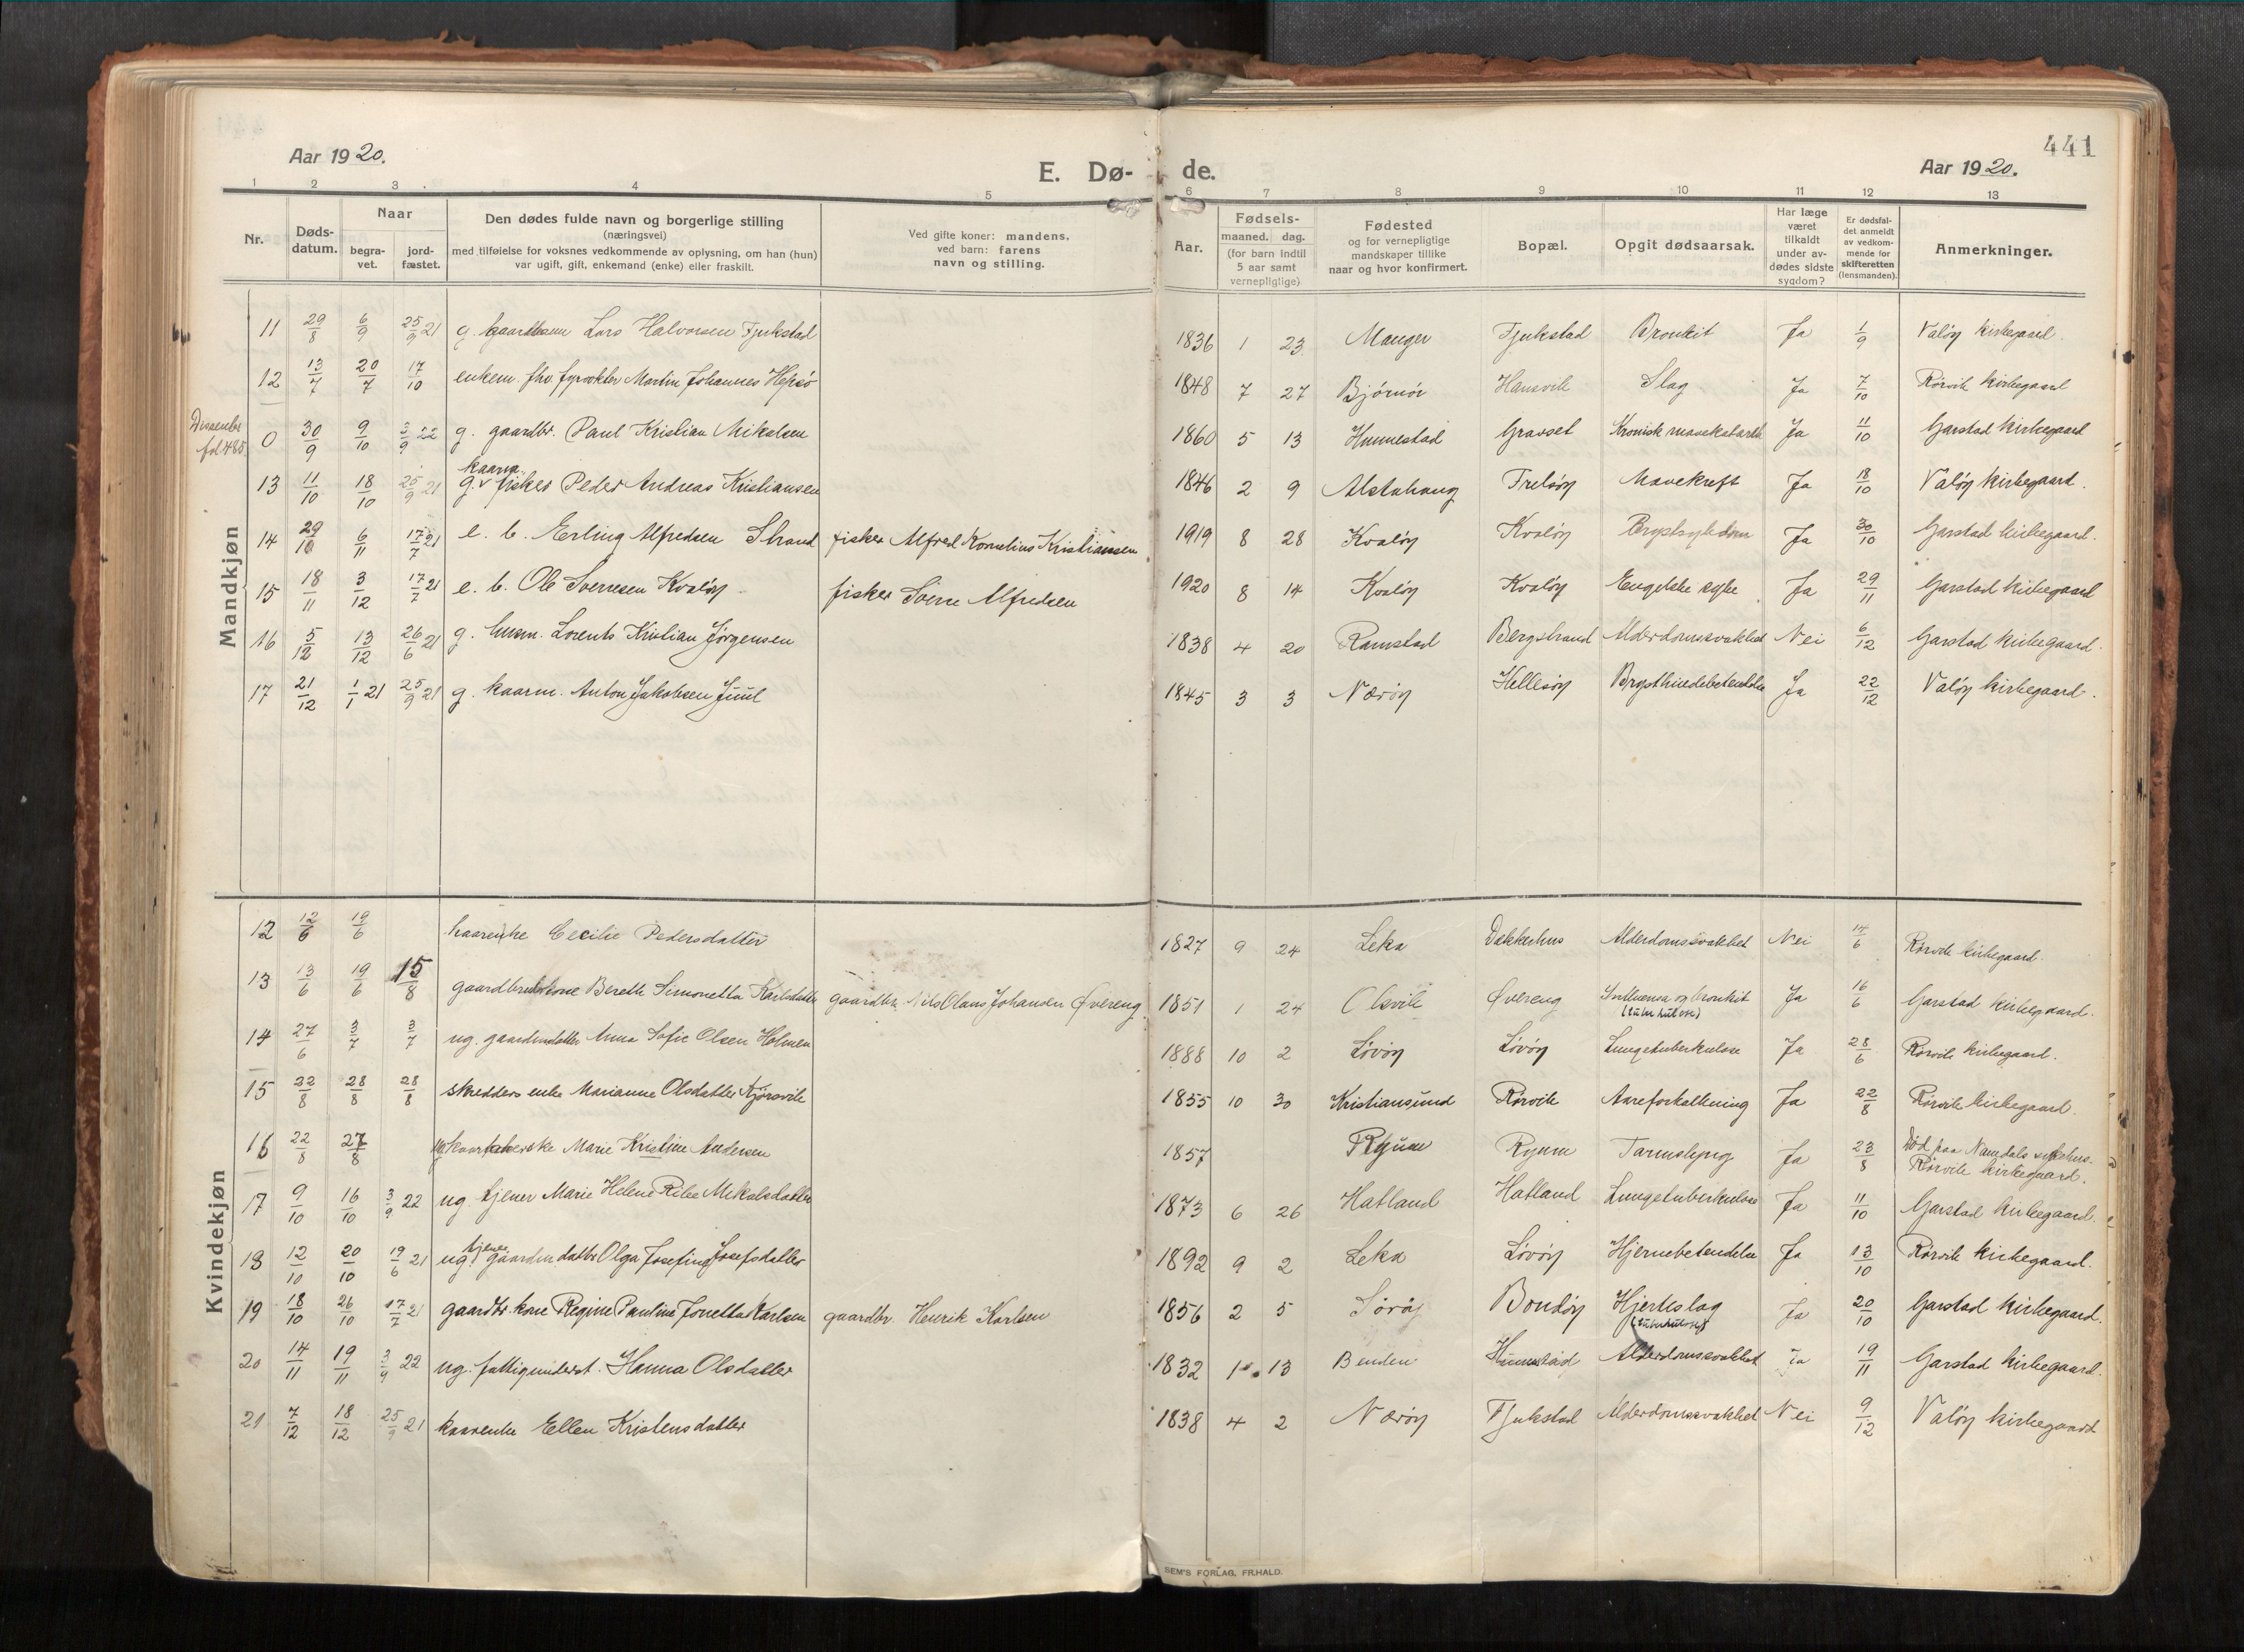 441
Aar 1920.
E. Dø- de.
Aar 1920.
1 2 3 4 5 6 7 8 9 10 11 12 13
Nr. Døds-datum. Naar begra-vet. jord-fæstet. Den dødes fulde navn og borgerlige stilling (næringsvei) med tilføielse for voksnes vedkommende av oplysning, om han (hun) var ugift, gift, enkemand (enke) eller fraskilt. Ved gifte koner: mandens, ved barn: farens navn og stilling. Aar. Fødsels- maaned. dag. (for barn indtil 5 aar samt vernepligtige) Fødested og for vernepligtige mandskaper tillike naar og hvor konfirmert. Bopæl. Opgit dødsaarsak. Har læge været tilkaldt under av-dødes sidste sygdom? Er dødsfal-det anmeldt av vedkom-mende for skifteretten (lensmanden). Anmerkninger.
Mandkjøn
11 29/8 6/9 25/9 21 g. kaarmann Lars Halvorsen Fjukstad 1836 1 23 Manger Fjukstad Bronkit Ja 1/9 Valøy kirkegaard.
12 13/7 20/7 17/10 enkem. fhv. fyrvokter Martin Johannes Hepsø 1848 7 27 Bjørnør Hansvik Slag Ja 7/10 Rørvik kirkegaard
fol 485
0 30/9 9/10 3/9 22 g. gaardbr. Paul Kristian Mikalsen 1860 5 13 Hunnestad Gravset Kronisk mavekatarrh Ja 11/10 Garstad kirkegaard
13 11/10 18/10 25/9 21 g. kaarm. fisker Peder Andreas Kristiansen 1846 2 9 Alstahaug Trelsøy Mavekreft Ja 18/10 Valøy kirkegaard.
14 29/10 6/11 17/7 21 e. b. Erling Alfredsen Strand fisker Alfred Kornelius Kristiansen 1919 8 28 Kvaløy Kvaløy Brystsykdom Ja 30/10 Garstad kirkegaard.
15 18/11 3/12 17/7 21 e. b. Ole Sverresen Kvaløy fisker Sverre Alfredsen 1920 8 14 Kvaløy Kvaløy Engelske syke Ja 29/11 Garstad kirkegaard
16 5/12 13/12 26/6 21 g. husm. Lorents Kristian Jørgensen 1838 4 20 Ramstad Bergstrand Alderdomssvakhet Nei 6/12 Garstad kirkegaard.
17 21/12 1/1 21 25/9 21 g. kaarm. Anton Jakobsen Juul 1845 3 3 Nærøy Hellesøy Brysthindebetendelse Ja 22/12 Valøy kirkegaard.
Kvindekjøn
12 12/6 19/6 kaarenke Cecilie Pedersdatter 1827 9 24 Leka Dækkerhus Alderdomssvakhet Nei 14/6 Rørvik kirkegaard.
13 13/6 19/6 15/8 gaardbrukerkone Bereth Simonetta Karlsdatter gaardbr. Nils Olaus Johansen Øvereng 1851 1 24 Olsvik Øvereng Influensa og bronkit (tuberkulose) Ja 16/6 Garstad kirkegaard.
14 27/6 3/7 3/7 ug. gaardmdatter Anna Sofie Olsen Holmen 1888 10 2 Løvøy Løvøy Lungetuberkulose Ja 28/6 Rørvik kirkegaard.
15 22/8 28/8 28/8 skredders enke Marianne Olsdatter Kjørsvik 1855 10 30 Kristiansund Rørvik Aareforkalkning Ja 22/8 Rørvik kirkegaard.
16 22/8 27/8 Marie Kristine Andersen 1857 Ryum Ryum Tarmslyng Ja 23/8 Død paa Namdals sykehus. Rørvik kirkegaard.
17 9/10 16/10 3/9 22 ug. tjener Marie Helene Ribe Mikalsdatter 1873 6 26 Hatland Hatland Lungetuberkulose Ja 11/10 Garstad kirkegaard.
18 12/10 20/10 19/6 21 ug. tjener gaardm datter Olga Josefine Josefsdatter 1892 9 2 Leka Løvøy Hjernebetendelse Ja 13/10 Rørvik kirkegaard.
19 18/10 26/10 17/7 21 gaardbr. kone Regine Pauline Jonetta Karlsen gaardbr. Henrik Karlsen 1856 2 5 Sørøy Bondøy Hjerteslag (tuberkulose) Ja 20/10 Garstad kirkegaard.
20 14/11 19/11 3/9 22 ug. fattigunderst. Hanna Olsdatter 1832 1 13 Binden Hunnestad Alderdomssvakhet Ja 19/11 Garstad kirkegaard.
21 7/12 18/12 25/9 21 kaarenke Ellen Kristensdatter 1838 4 2 Nærøy Fjukstad Alderdomssvakhet Nei 9/12 Valøy kirkegaard
SEM'S FORLAG, FR.HALD.